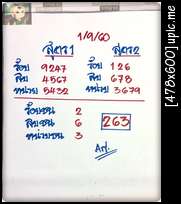 1/9/60
สูตร1 สูตร2
ร้อย 9247 ร้อย 126
สิบ 4567 สิบ 678
หน่วย 5432 หน่วย 3679
ร้อยชน 2
สิบชน 6
หน่วยชน 3
263
[478x600] upic.me